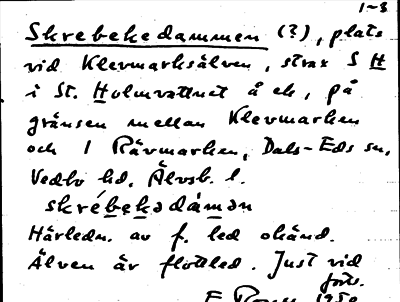 1-3
Skrebekedammen (?), plats
vid Klevmarksälven, strax S H
i St. Holmvattnet å ek, på
gränsen mellan Klevmarken
och 1 Rävmarken, Dals-Eds sn,
Vedbo hd, Älvsb. l.
skrébekədámən
Härledn. av f. led okänd.
Älven är flottled. Just vid
forts.